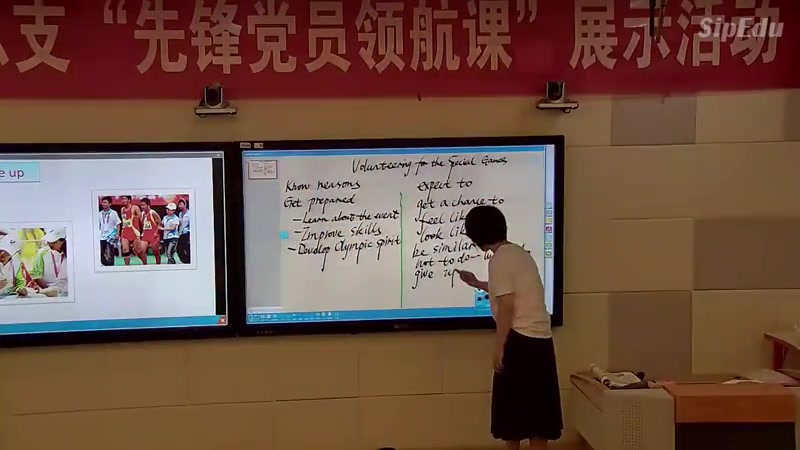 支 “先锋党员领航课” 展示活动
SipEdu
e up
Volunteering for the Special Games
Know reasons
Get prepared
- Learn about the event
- Improve skills
- Develop Olympic spirit
expect to
get a chance to
feel lik
look lik
be similar
not to do
give up